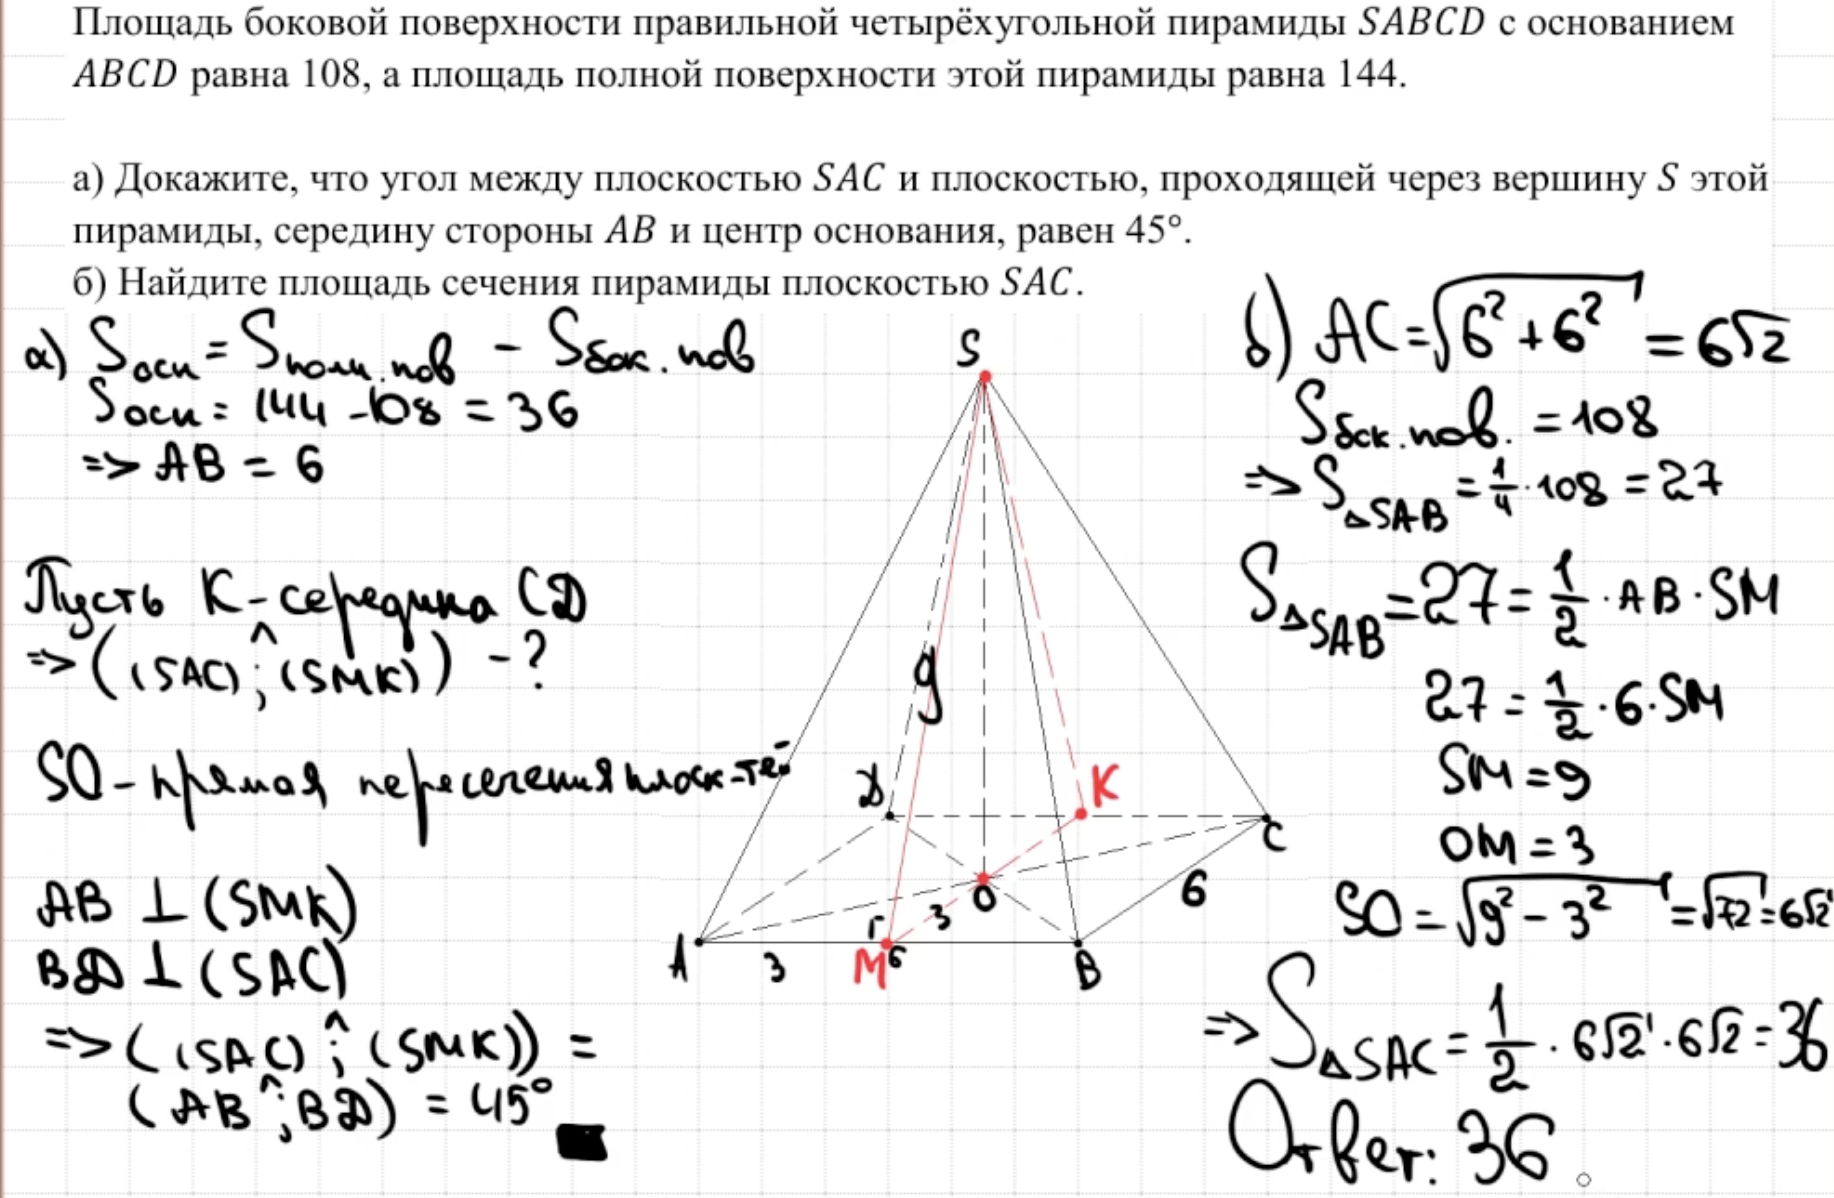 Площадь боковой поверхности правильной четырёхугольной пирамиды SABCD с основанием
ABCD равна 108, а площадь полной поверхности этой пирамиды равна 144.
а) Докажите, что угол между плоскостью SAC и плоскостью, проходящей через вершину S этой
пирамиды, середину стороны AB и центр основания, равен 45°.
б) Найдите площадь сечения пирамиды плоскостью SAC.
а) Sосн = Sполн.пов − Sбок.пов
Sосн = 144 − 108 = 36
=> AB = 6
Пусть K - середина CD
=> ((SAC) ^; (SMK)) - ?
SO - прямая пересечения плоск-тей
AB ⊥ (SMK)
BD ⊥ (SAC)
=> ((SAC) ^; (SMK)) =
(AB ^; BD) = 45°
S
9
D
K
C
O
6
3
A
3
M
6
B
б) AC = √6² + 6² = 6√2
Sбок.пов. = 108
=> S△SAB = 1/4 · 108 = 27
S△SAB = 27 = 1/2 · AB · SM
27 = 1/2 · 6 · SM
SM = 9
OM = 3
SO = √9² − 3² = √72 = 6√2
=> S△SAC = 1/2 · 6√2 · 6√2 = 36
Ответ: 36.